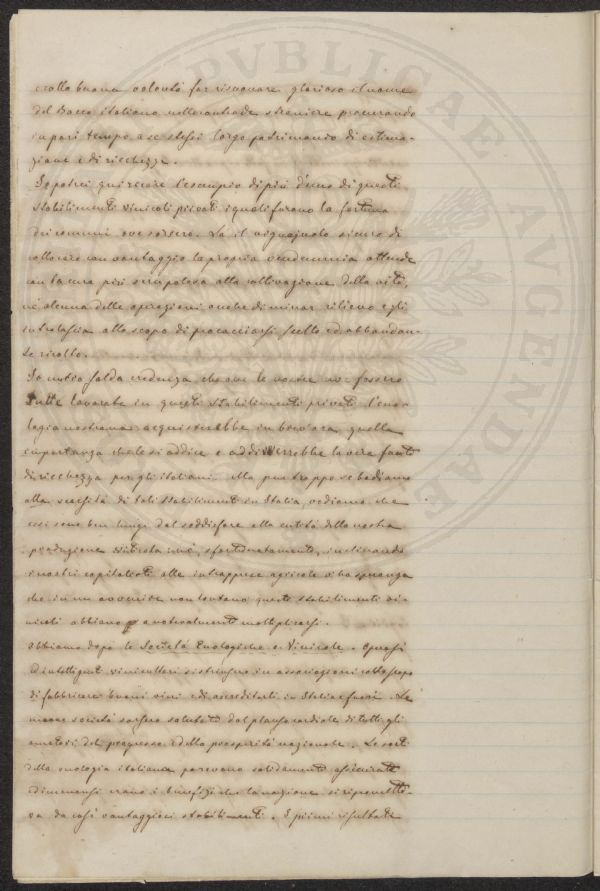 e colla buona volontà far risuonare glorioso il nome
del Bacco italiano nelle contrade straniere procurando
in pari tempo a se stessi largo patrimonio di estima-
zione e di ricchezza.
Io potrei qui recare l'esempio di più d'uno di questi
stabilimenti vinicoli privati i quali furono la fortuna
dei comuni ove sorsero. Là il vignajuolo sicuro di
collocare con vantaggio la propria vendemmia attende
con la cura più scrupolosa alla coltivazione della vite,
nè alcuna delle operazioni anche di minor rilievo egli
intralascia allo scopo di procacciarsi scelto ed abbondan-
te ricolto.
Io nutro salda credenza che ove le nostre uve fossero
tutte lavorate in questi stabilimenti privati l'eno-
logia nostrana acquisterebbe in breve ora, quella
importanza che le si addice e addiverrebbe la vera fonte
di ricchezza per gli italiani. Ma pur troppo se badiamo
alla scarsità di tali stabilimenti in Italia, vediamo che
essi sono ben lungi dal soddisfare alla entità della nostra
produzione viticola nè, sfortunatamente, inclinando
i nostri capitalisti alle intraprese agricole vi ha speranza
che in un avvenire non lontano questi stabilimenti vi-
nicoli abbiano a notevolmente moltiplicarsi.
Abbiamo dopo le Società Enologiche e Vinicole. Operosi
ed intelligenti vinicultori si strinsero in associazioni collo scopo
di fabbricare buoni vini e di accreditarli in Italia e fuori. Le
nuove società sorsero salutate dal plauso cordiale di tutti gli
amatori del progresso e della prosperità nazionale. Le sorti
della enologia italiana parevano solidamente assicurate
ed immensi erano i benefizi che la nazione si ripromette-
va da così vantaggiosi stabilimenti. I primi risultati
PVBLICAE AVGENDAE